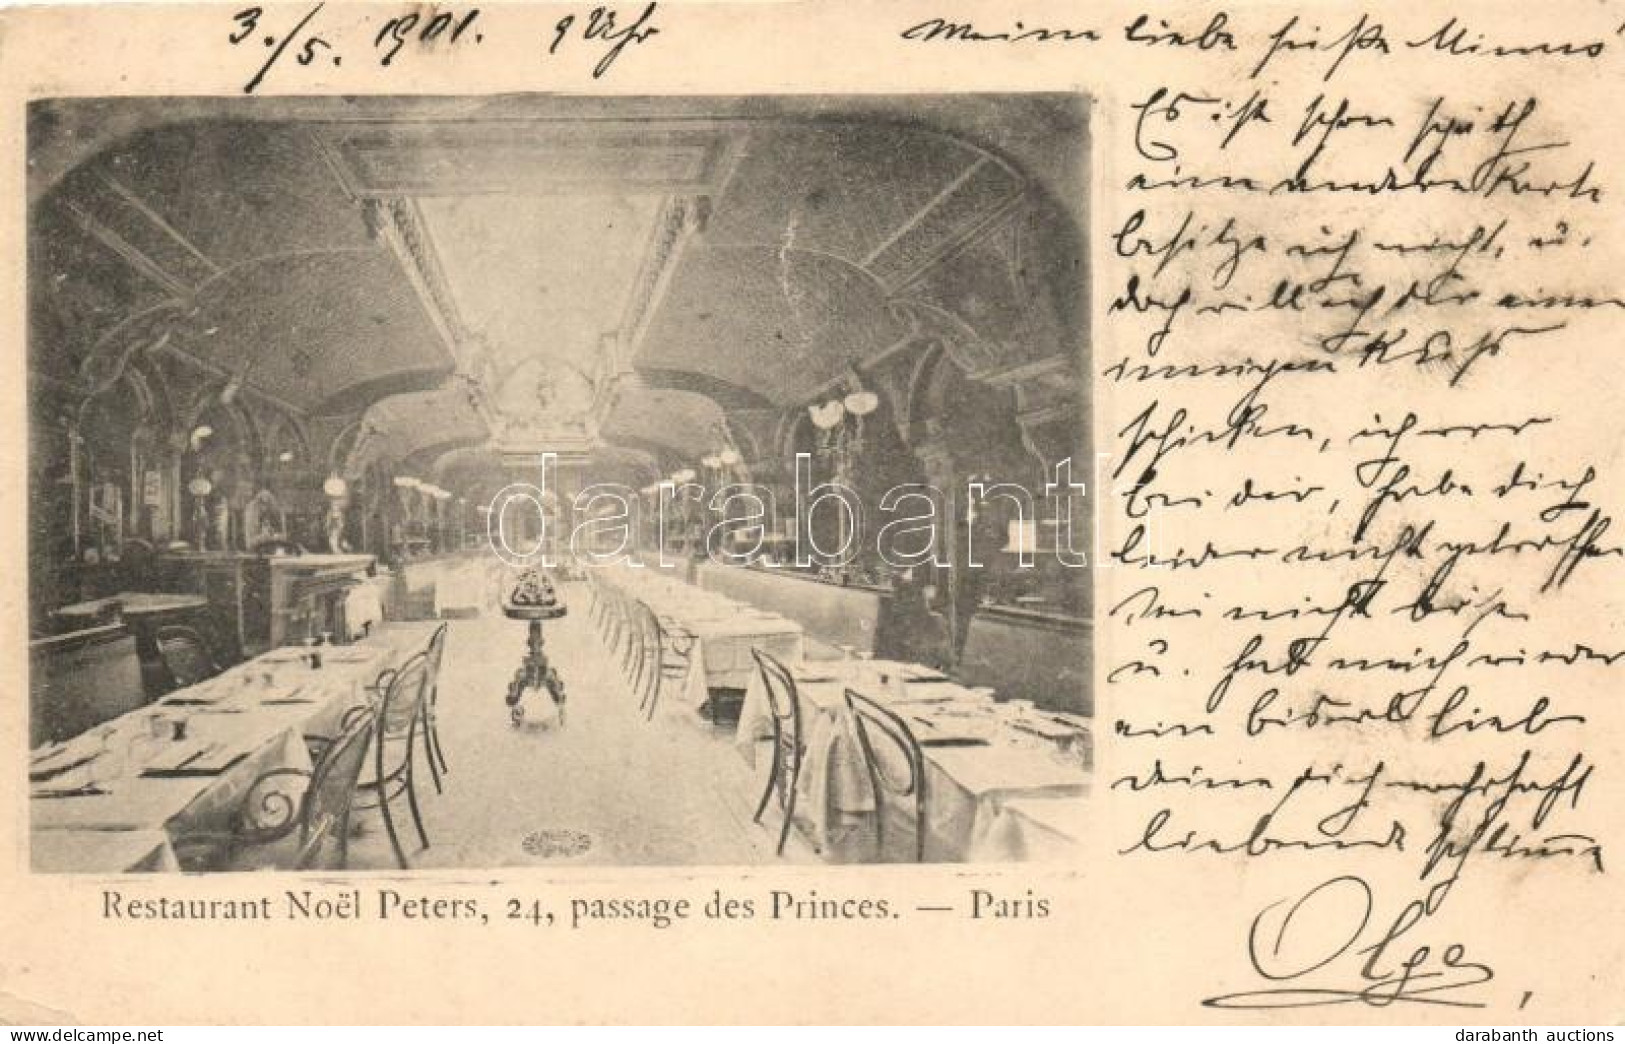 3./5. 1901. 9 Uhr
Meine liebe süße Minna!
Es ist schon späth
eine andere Karte
besitze ich nicht, u.
doch will ich dir einen
innigen Kuß
schicken, ich war
bei dir, habe dich
leider nicht getroffen
sei nicht böse
u. hab mich wieder
ein biserl lieb
deine dich wahrhaft
liebende schlimme
Olga,
Restaurant Noël Peters, 24, passage des Princes. — Paris
darabanth
darabanth auctions